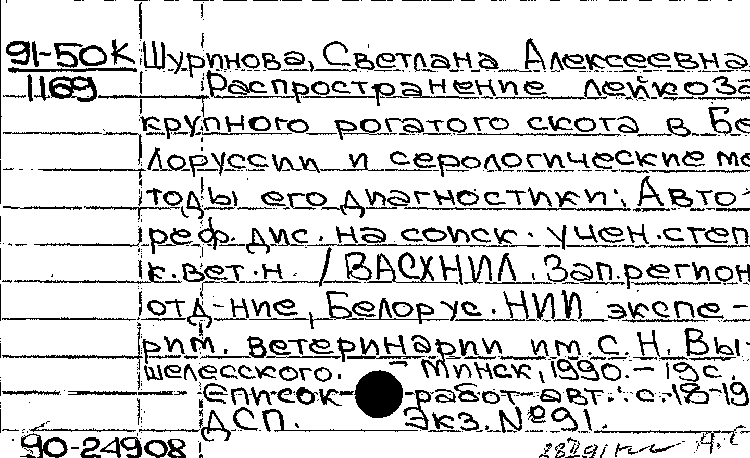 91-50К Шуринова, Светлана Алексеевна
1169 Распространение лейкоза
крупного рогатого скота в Бе
лоруссии и серологические ме
тоды его диагностики: Авто-
реф. дис. на соиск. учен. степ
к. вет. н. / ВАСХНИЛ. Зап. регион
отд-ние, Белорус. НИИ экспе-
рим. ветеринарии им. С. Н. Вы-
шелесского. - Минск, 1990. - 19 с.
Список работ авт.: с. 18-19
ДСП. Экз. № 91.
90-24908